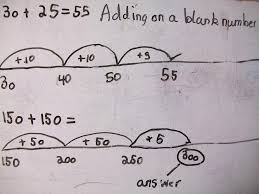 30 + 25 = 55 Adding on a blank number
+10 +10 +5
30 40 50 55
150 + 150 =
+ 50 + 50 + 5
150 200 250 300
answer